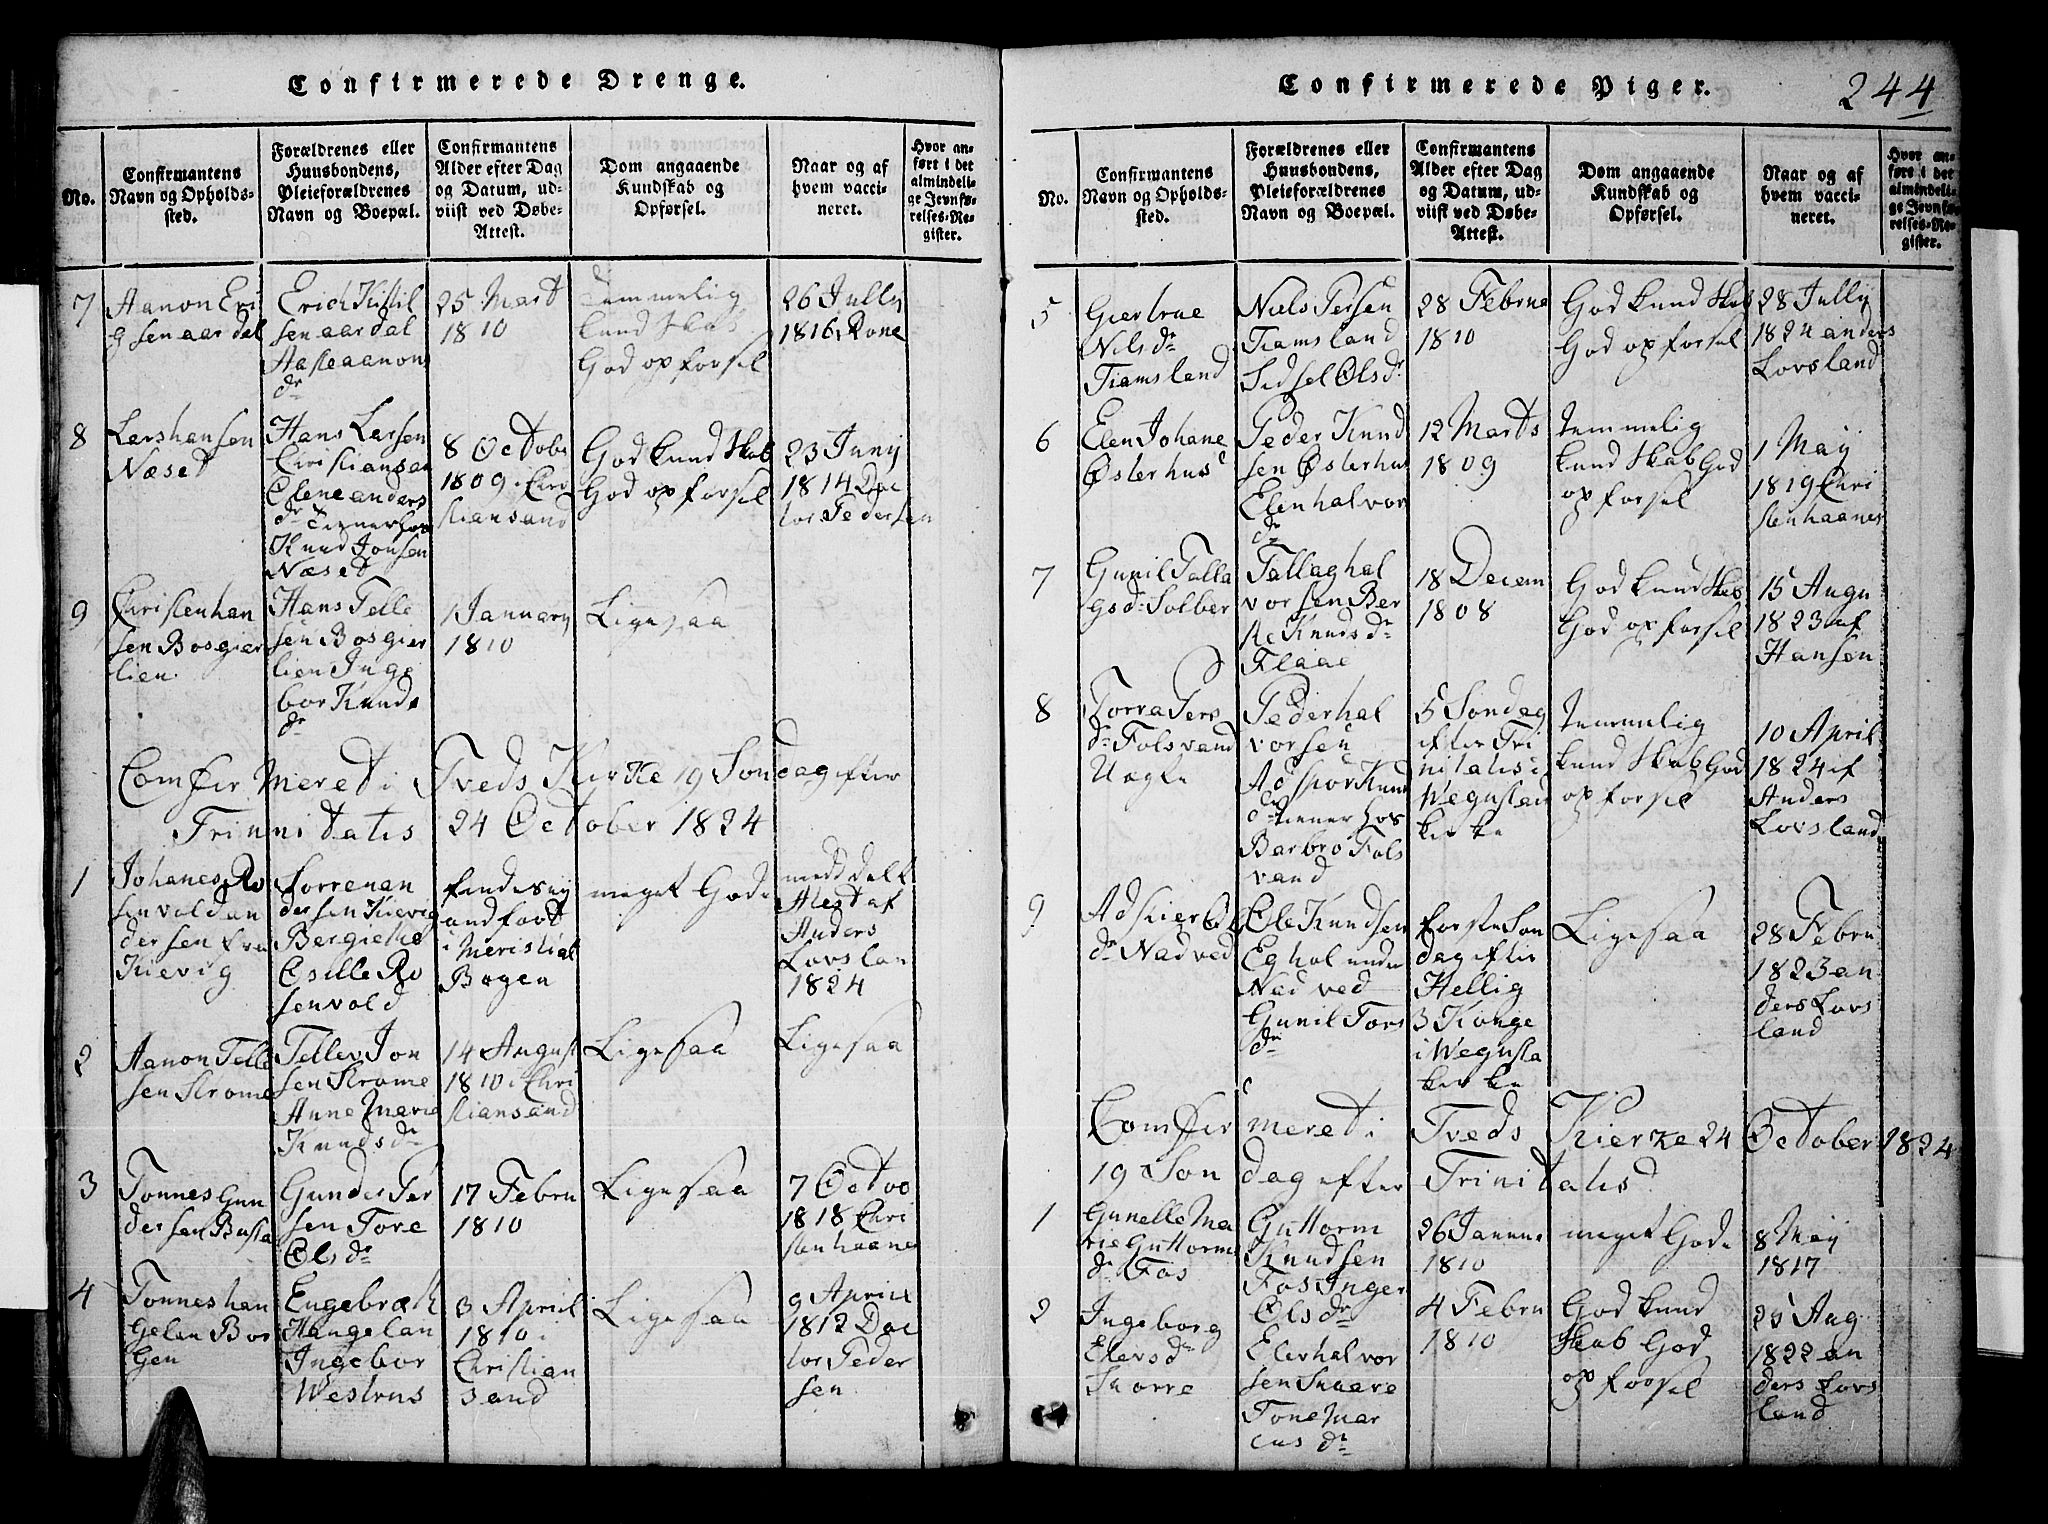 Confirmerede Drenge.
No.
Confirmantens
Navn og Opholds-
sted.
Forældrenes eller
Huusbondens,
Pleieforældrenes
Navn og Boepæl.
Confirmantens
Alder efter Dag
og Datum, ud-
viist ved Døbe-
Attest.
Dom angaaende
Kundskab og
Opførsel.
Naar og af
hvem vacci-
neret.
Hvor an-
ført i det
almindeli-
ge Jevnfø-
relses-Re-
gister.
7
Aanon Eri
g sen aardal
Erich Kittil
sen aardal
Aasle aanons
dr
25 Mart
1810
Temmelig
kundskab
God opforsel
26 Jully
1816 Rone
8
Lars hansen
Næset
Hans Larsen
Christiansan
Elene anders
dr Tienner hos
Knud Jonsen
Næset
8 Octobe
1809 i Chri
stiansand
God kundskab
God opforsel
23 Juny
1814 Doc
tor Pedersen
9
Christen han
sen Bosgier
lien
Hans Telle
sen Bosgier
lien Inge
bor Knuds
dr
1 Januarij
1810
Ligesaa
Comfer Meret i Tveds Kirke 19 Sondag efter
Trinnitatis 24 October 1824
1
Johanes Ro
senvold an
dersen
Kievig
Sorren an
dersen Kievig
Bergiethe
Cesille Ro
senvold
findes ey
andført
i Meristial
Bogen
meget Gode
medd delt
Atest af
Anders
Lovslan
1824
2
Aanon Telle
sen Strome
Tellev Jon
sen Strome
Anne Marie
Knudsdr
14 August
1810 i Chri
stiansand
Ligesaa
Ligesaa
3
Tonnes Gun
dersen Busta
Gunder Per
sen Tore
Olsdr
17 Febru
1810
Ligesaa
7 Octo
1818 Chri
sten haanes
4
Tonnes han
gelan Bor
gen
Engebræth
Hangelan
Ingebor
Westrus
3 April
1810 i
Christian
sand
Ligesaa
9 April
1812 Doc
tor Peder
sen
Confirmerede Piger.
244
No.
Confirmantens
Navn og Opholds-
sted.
Forældrenes eller
Huusbondens,
Pleieforældrenes
Navn og Boepæl.
Confirmantens
Alder efter Dag
og Datum, ud-
viist ved Døbe-
Attest.
Dom angaaende
Kundskab og
Opførsel.
Naar og af
hvem vacci-
neret.
Hvor an-
ført i det
almindeli-
ge Jevnfø-
relses-Re-
gister.
5
Giertrue
Nilsdr
Tiamsland
Niels Persen
Tiamsland
Sidsel Olsdr
28 Febru
1810
God kundskab
God opforsel
28 Jully
1824 anders
Lovsland
6
Elen Johane
Østerhus
Peder Knud
sen Østerhus
Elen halvor
dr
12 Marts
1809
temmelig
kundskab God
opforsel
1 May
1819 Chri
sten haanes
7
Gunil Talla
gsdr Solber
Tallag hal
vorsen Ber
te Knudsdr
Flaae
18 Decem
1808
God kundskab
God opforsel
15 Augu
1823 af
Hansen
8
Torra Pers
dr Folsvand
Uagle
Peder hal
vorsen
Adspor Knu
dr tiener hos
Barbro Fols
vand
5 Søndag
efter Tri
nitatis i
Wegustad
kirke
temmelig
kundskab God
opforsel
10 April
1824 af
Anders
Lovsland
9
Adsier Ols
dr Nadved
Ole Knudsen
Eghol under
Nadved
Gunil Tors
dr
forste Son
dag efter
Hellig
3 Konge
i Wegusta
kirke
Ligesaa
28 Febru
1823 an
ders Lovs
land
Comfer meret i Tveds Kierke 24 October 1824
19 Son dag efter Trinitatis
1
Gunelle Ma
rie Guttorms
dr Fos
Guttorm
Knudsen
Fos Inger
Olsdr
26 Januar
1810
meget Gode
8 May
1817
2
Ingeborg
Elevsdr
Snorre
Elev halvor
sen Snaare
Tone Mar
cusdr
4 Febru
1810
God kund
skab God
opforsel
25 Aug
1822 an
ders Lovs
land